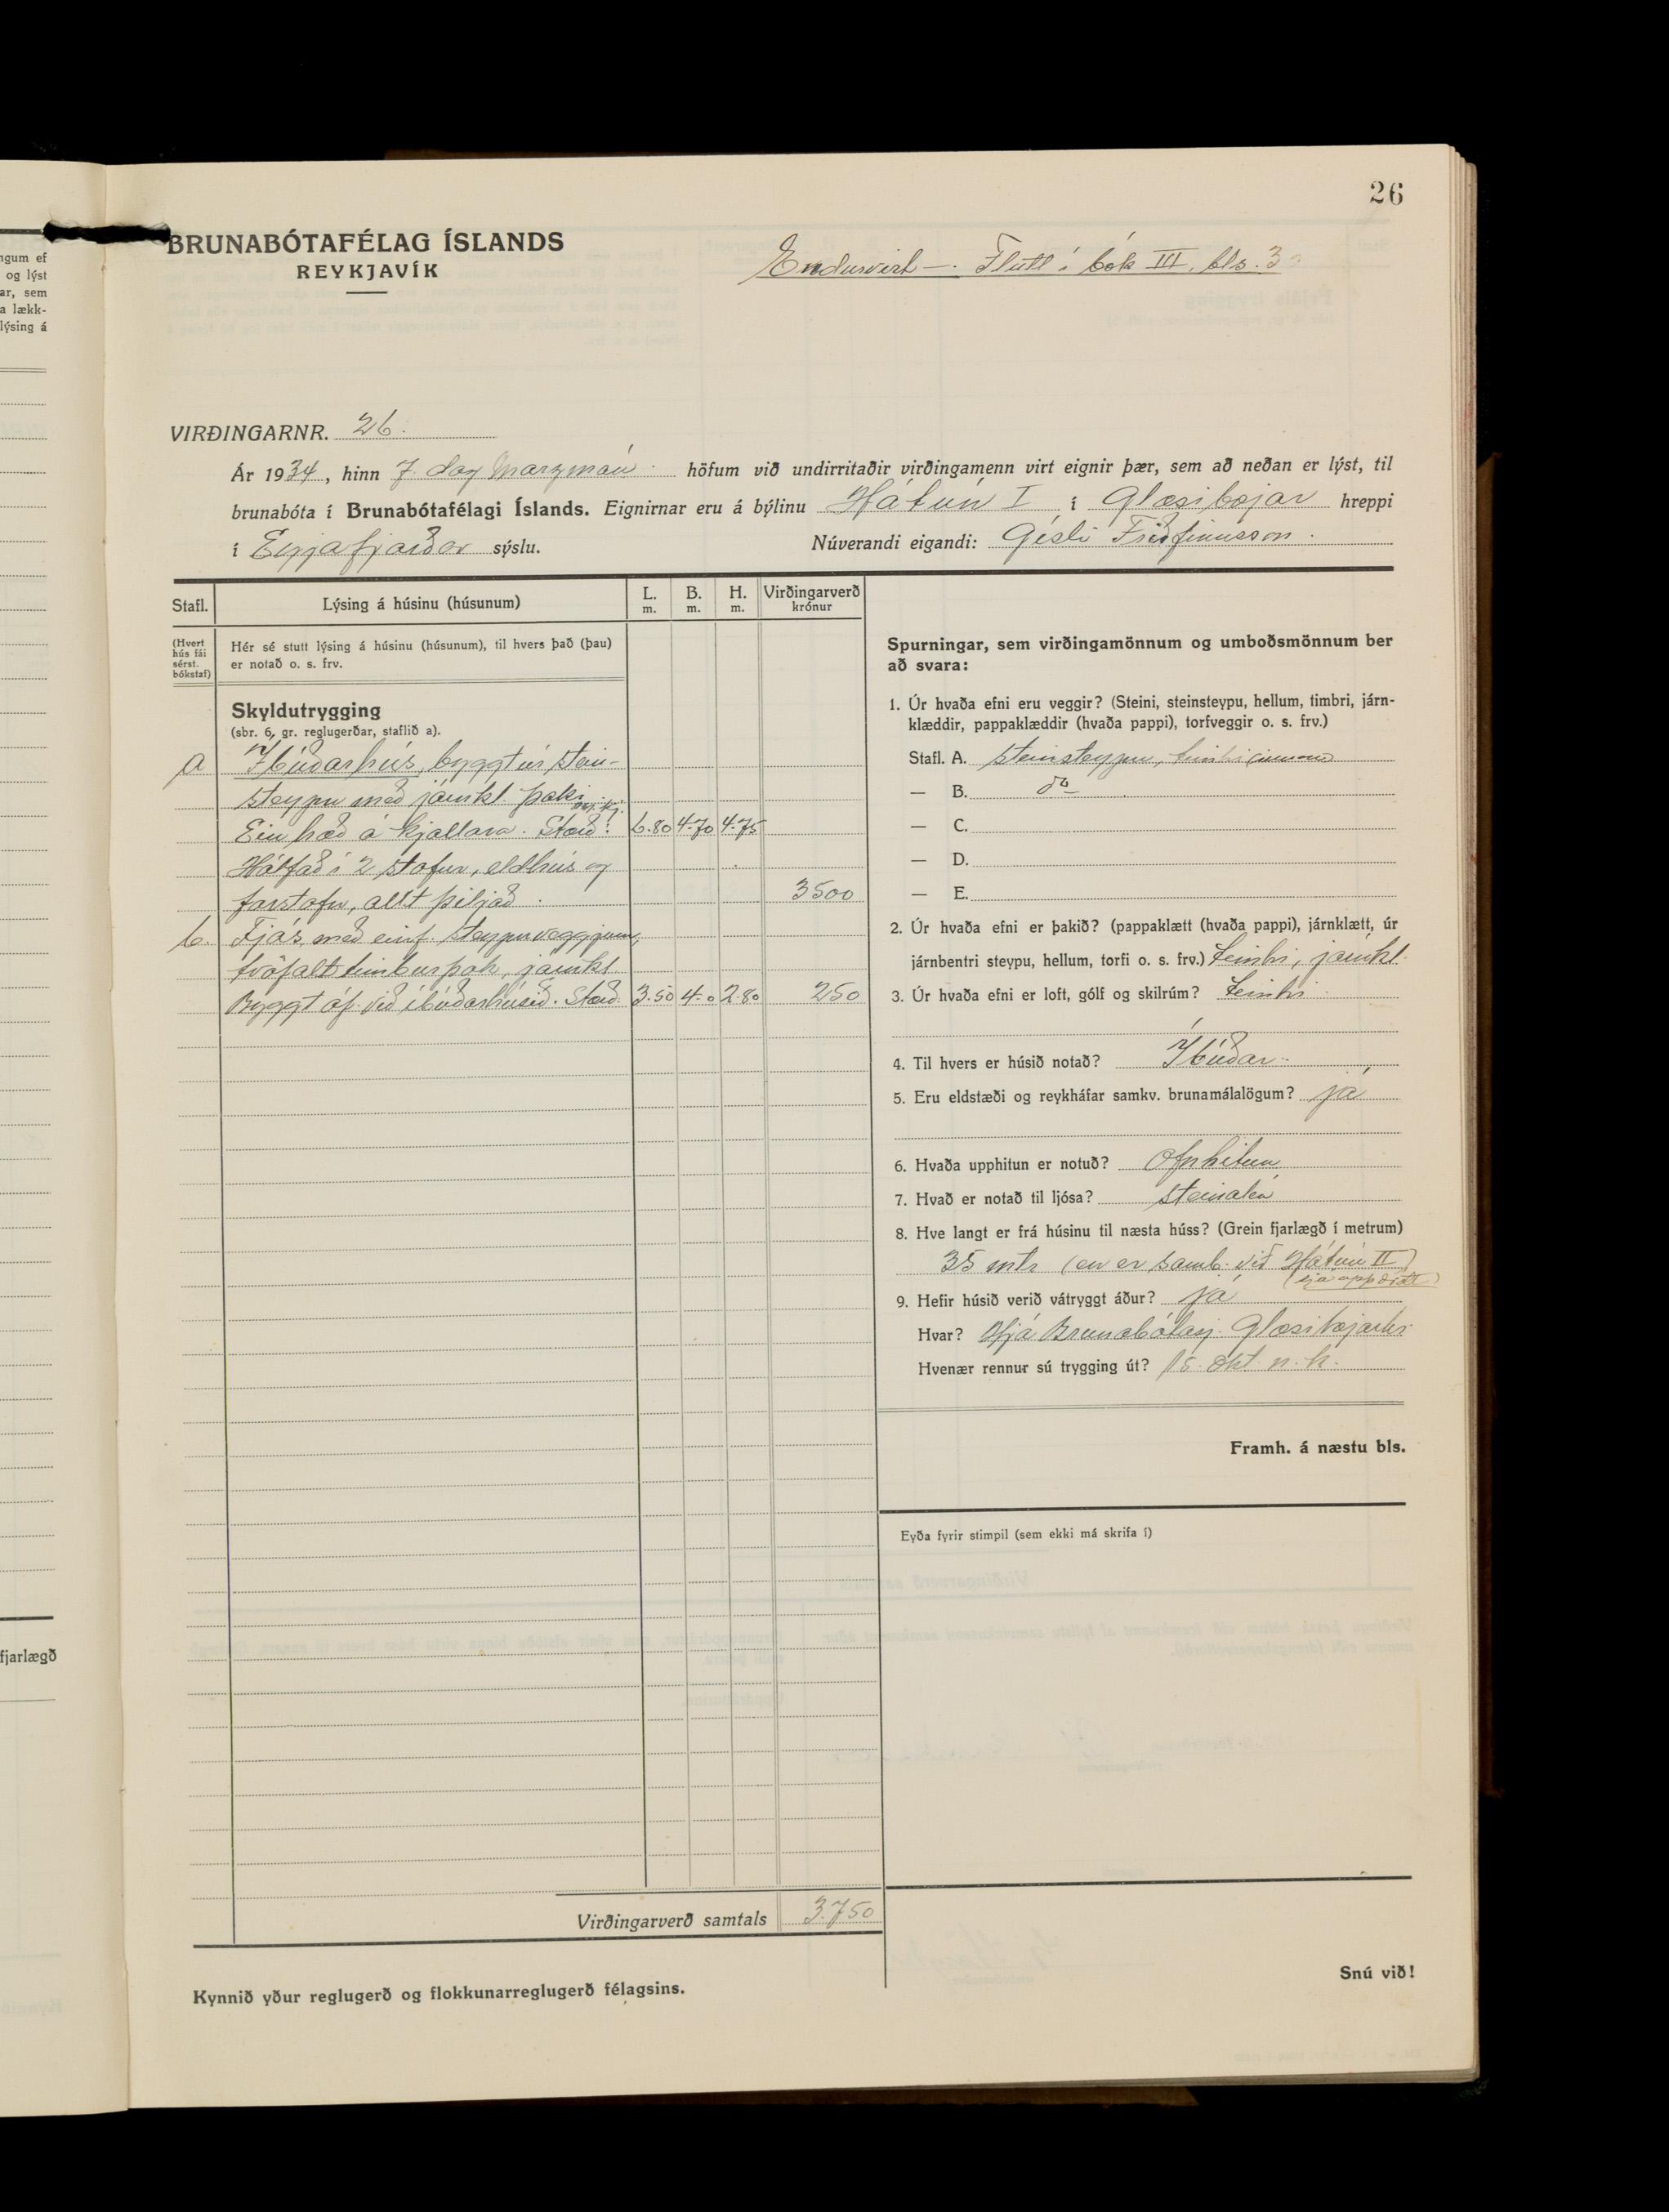 26
BRUNABÓTAFÉLAG ÍSLANDS
REYKJAVÍK
Endurvirt —. Flutt í bók III, bls. 3
VIRÐINGARNR. 26.
Ár 1934, hinn 7. dag marzmán. höfum við undirritaðir virðingamenn virt eignir þær, sem að neðan er lýst, til
brunabóta í Brunabótafélagi Íslands. Eignirnar eru á býlinu Hátún I í Glæsibæjar hreppi
í Eyjafjarðar sýslu. Núverandi eigandi: Gísli Friðfinnsson.
Stafl. Lýsing á húsinu (húsunum) L. m. B. m. H. m. Virðingarverð krónur
(Hvert hús fái sérst. bókstaf)
Hér sé stutt lýsing á húsinu (húsunum), til hvers það (þau)
er notað o. s. frv.
Skyldutrygging
(sbr. 6. gr. reglugerðar, staflið a).
a Íbúðarhús, byggt úr stein-
steypu með járnkl. þaki
Ein hæð á kjallara. Stærð: 6.80 4.70 4.75
Hólfað í 2 stofur, eldhús og
forstofu, allt þiljað. 3500
b. Fjós með einf. steypuveggjum,
tvöfalt timburþak, járnkl.
Byggt áf. við íbúðarhúsið. Stærð. 3.50 4.0 2.80 250
Virðingarverð samtals 3.750
Kynnið yður reglugerð og flokkunarreglugerð félagsins.
Spurningar, sem virðingamönnum og umboðsmönnum ber
að svara:
1. Úr hvaða efni eru veggir? (Steini, steinsteypu, hellum, timbri, járn-
klæddir, pappaklæddir (hvaða pappi), torfveggir o. s. frv.)
Stafl. A. steinsteypu, timbri innan
— B. do
— C.
— D.
— E.
2. Úr hvaða efni er þakið? (pappaklætt (hvaða pappi), járnklætt, úr
járnbentri steypu, hellum, torfi o. s. frv.) timbri, járnkl.
3. Úr hvaða efni er loft, gólf og skilrúm? timbri
4. Til hvers er húsið notað? Íbúðar.
5. Eru eldstæði og reykháfar samkv. brunamálalögum? já
6. Hvaða upphitun er notuð? Ofnhitun
7. Hvað er notað til ljósa? steinolía
8. Hve langt er frá húsinu til næsta húss? (Grein fjarlægð í metrum)
35 mtr. (en er samb. við Hátún II)
(sjá uppdrátt)
9. Hefir húsið verið vátryggt áður? já
Hvar? Hjá Brunabótasj. Glæsibæjarhr.
Hvenær rennur sú trygging út? 15. okt. n. k.
Framh. á næstu bls.
Eyða fyrir stimpil (sem ekki má skrifa í)
Snú við!
ngum ef
og lýst
ar, sem
a lækk-
lýsing á
fjarlægð